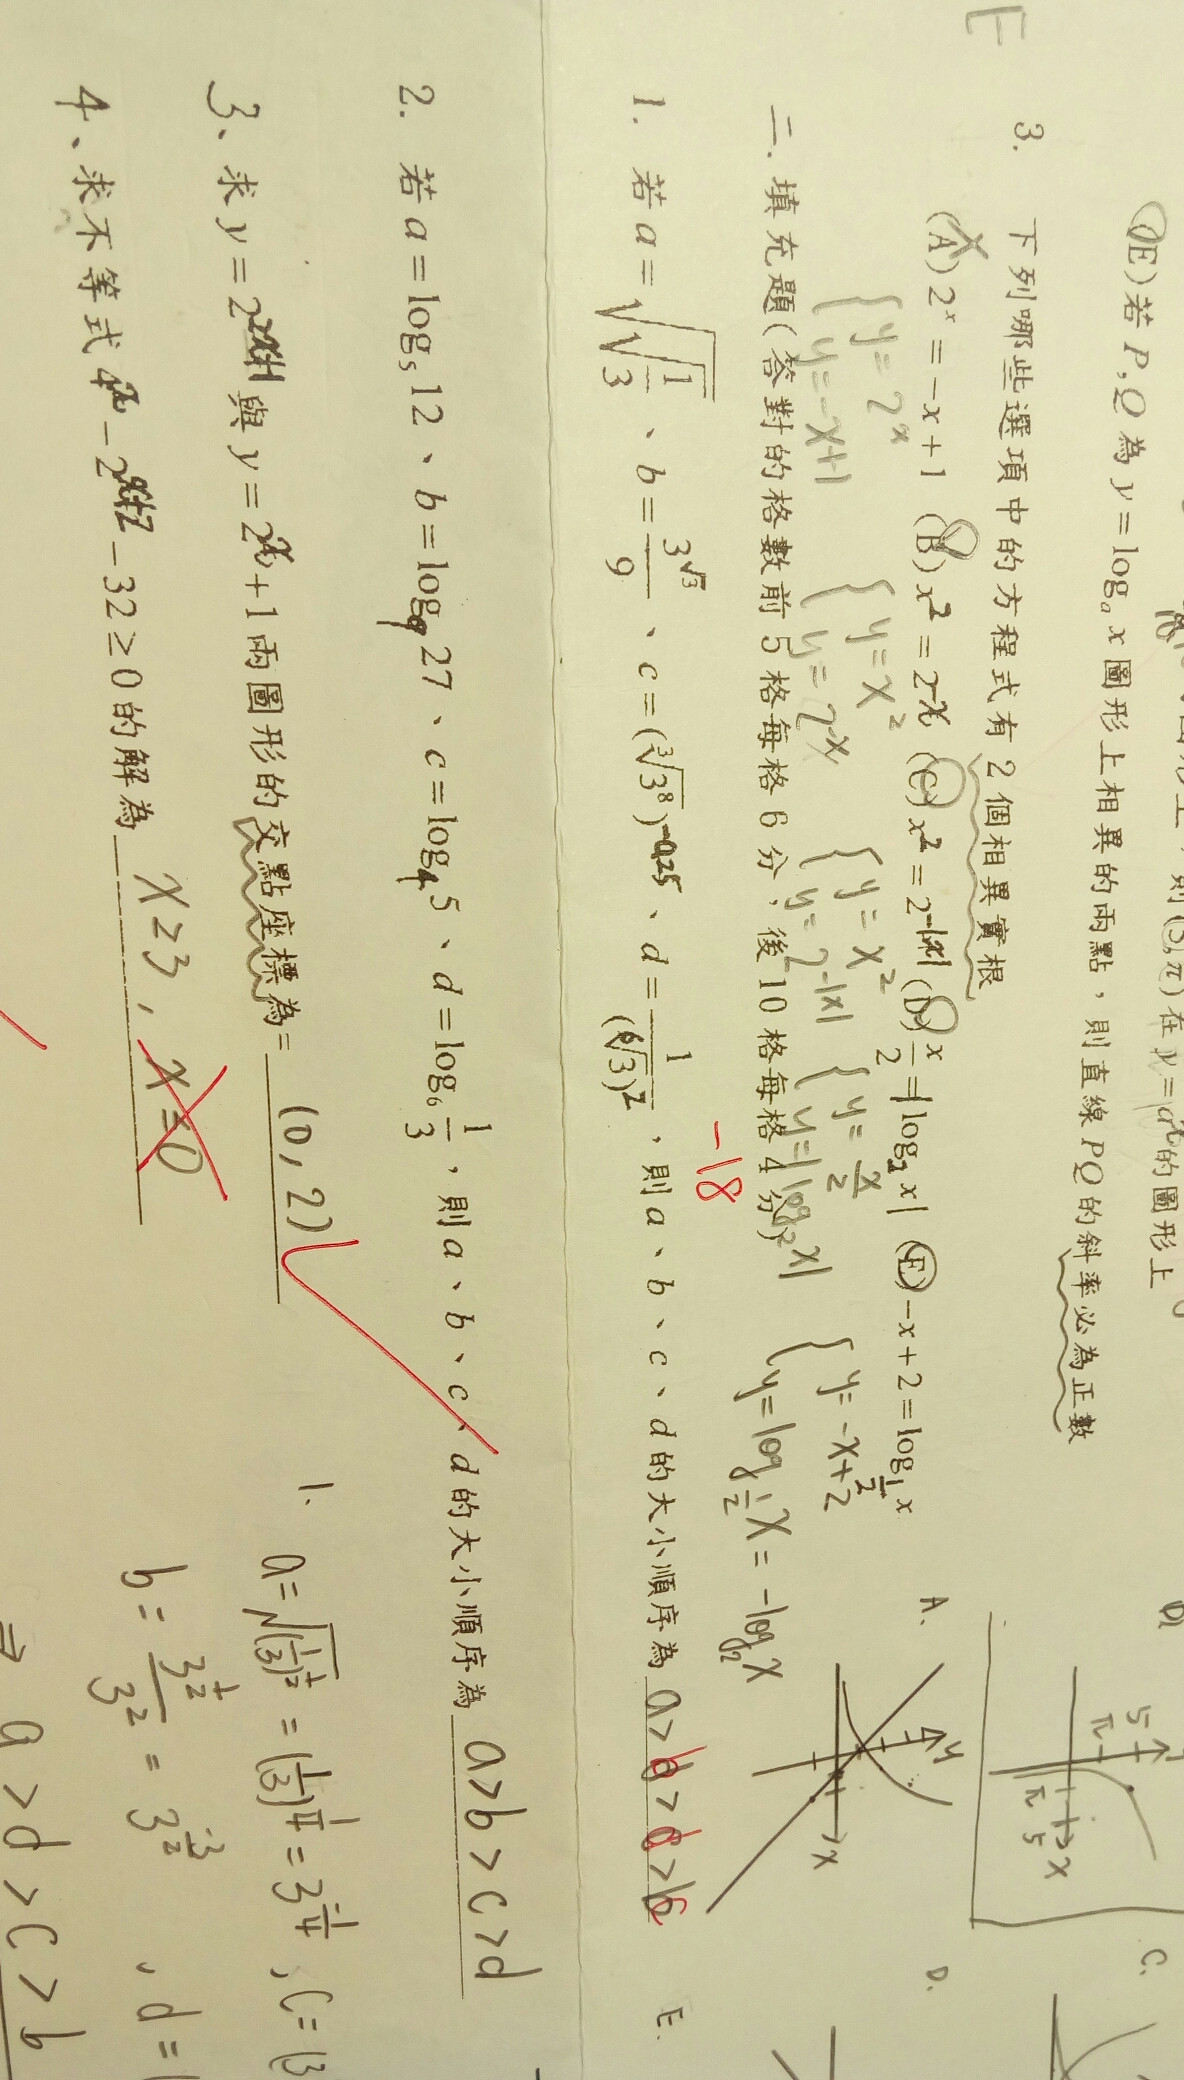 (E)若P,Q為y=logₐx圖形上相異的兩點，則直線PQ的斜率必為正數
3. 下列哪些選項中的方程式有2個相異實根
(A) 2^x = -x+1 (B) x² = 2^-x (C) x² = 2^-|x| (D) x/2 = |log₂x| (E) -x+2 = log_(1/2) x
{ y=2^x
y=-x+1
{ y=x²
y=2^-x
{ y=x²
y=2^-|x|
{ y=x/2
y=|log₂x|
{ y=-x+2
y=log_(1/2) x = -log₂x
二. 填充題(答對的格數前5格每格6分，後10格每格4分)
-18
1. 若a=√(√(1/3))、b=3^√3/9、c=(³√3⁸)^-0.25、d=1/(⁶√3)²，則a、b、c、d的大小順序為 a>d>c>b
2. 若a=log₅12、b=log₉27、c=log₄5、d=log₆(1/3)，則a、b、c、d的大小順序為 a>b>c>d
3、求y=2^(x+1)與y=2^x+1兩圖形的交點座標為= (0,2)
4、求不等式4^x-2^(x+2)-32≥0的解為 x≥3,
A.
y
x
D.
E.
C.
5
π
π 5
x
1.
a=√((1/3)^(1/2)) = (1/3)^(1/4) = 3^(-1/4), C=(3
b=3^(1/2)/3² = 3^(-3/2), d=
⇒ a>d>c>b